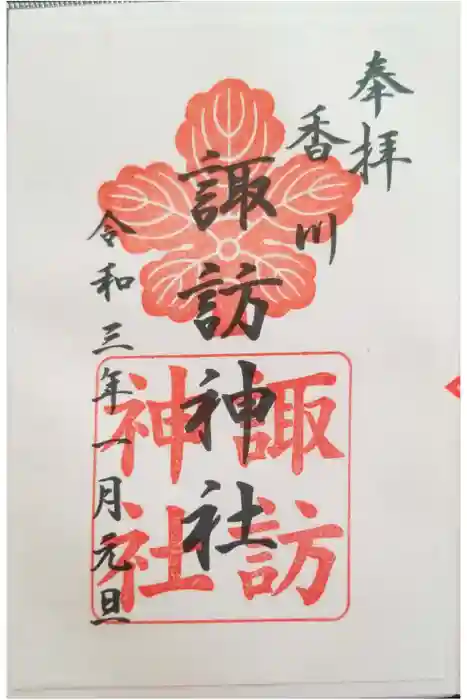 奉拝
香川
諏訪神社
諏訪
神社
令和三年一月元旦